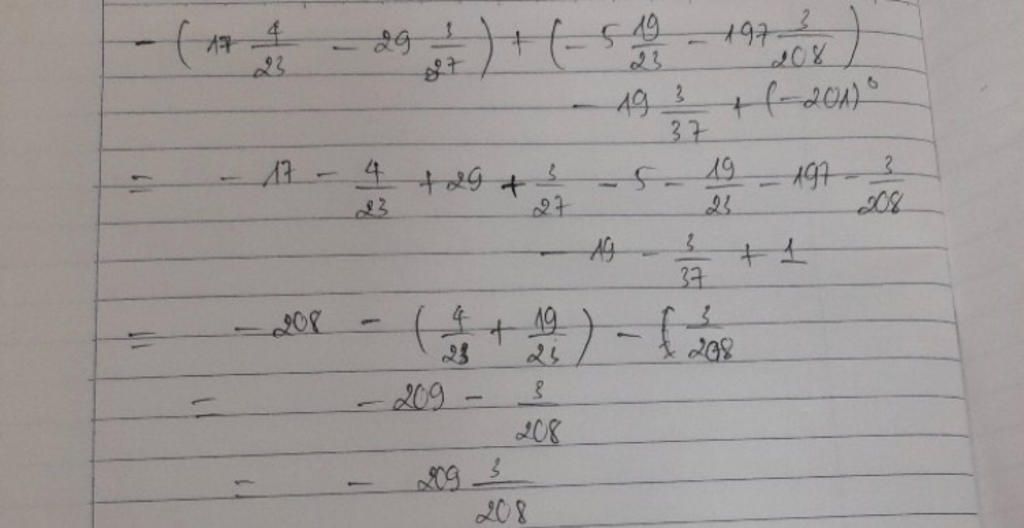 - (17 4/23 - 29 3/27) + (- 5 19/23 - 197 3/208)
- 19 3/37 + (-201)⁰
= - 17 - 4/23 + 29 + 3/27 - 5 - 19/23 - 197 - 3/208
- 19 - 3/37 + 1
= - 208 - (4/23 + 19/23) - 3/208
= - 209 - 3/208
= - 209 3/208